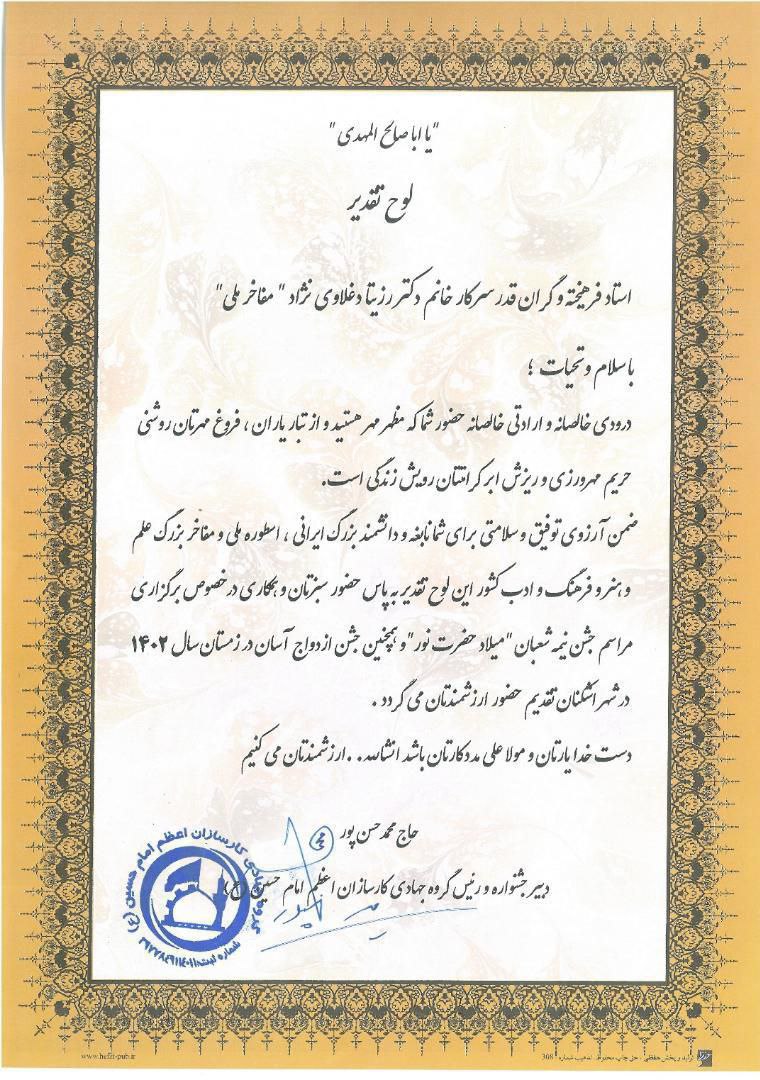 "یا اباصالح المهدی"
لوح تقدیر
استاد فرهیخته و گران قدر سرکار خانم دکتر رزیتا دغلاوی نژاد "مفاخر ملی"
با سلام و تحیات ؛
درودی خالصانه و ارادتی خالصانه حضور شما که مظهر مهر هستید و از تبار یاران ، فروغ مهرتان روشنی
حریم مهرورزی و ریزش ابر کرامتتان رویش زندگی است.
ضمن آرزوی توفیق و سلامتی برای شما نابغه و دانشمند بزرگ ایرانی ، اسطوره ملی و مفاخر بزرگ علم
و هنر و فرهنگ و ادب کشور این لوح تقدیر به پاس حضور سبزتان و همکاری در خصوص برگزاری
مراسم جشن نیمه شعبان "میلاد حضرت نور" و همچنین جشن ازدواج آسان در زمستان سال ۱۴۰۲
در شهر اشکنان تقدیم حضور ارزشمندتان می گردد .
دست خدا یارتان و مولا علی مددکارتان باشد انشالله . . ارزشمندتان می کنیم
حاج محمد حسن پور
دبیر جشنواره و رئیس گروه جهادی کارسازان اعظم امام حسین (ع)
گروه جهادی کارسازان اعظم امام حسین (ع)
شماره ثبت:
www.hefzi-pub.ir
تولید و پخش حفظی - حق چاپ محفوظ تذهیب شماره 308